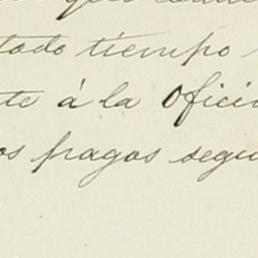 que
todo tiempo
te á la Ofici
os pagos segu